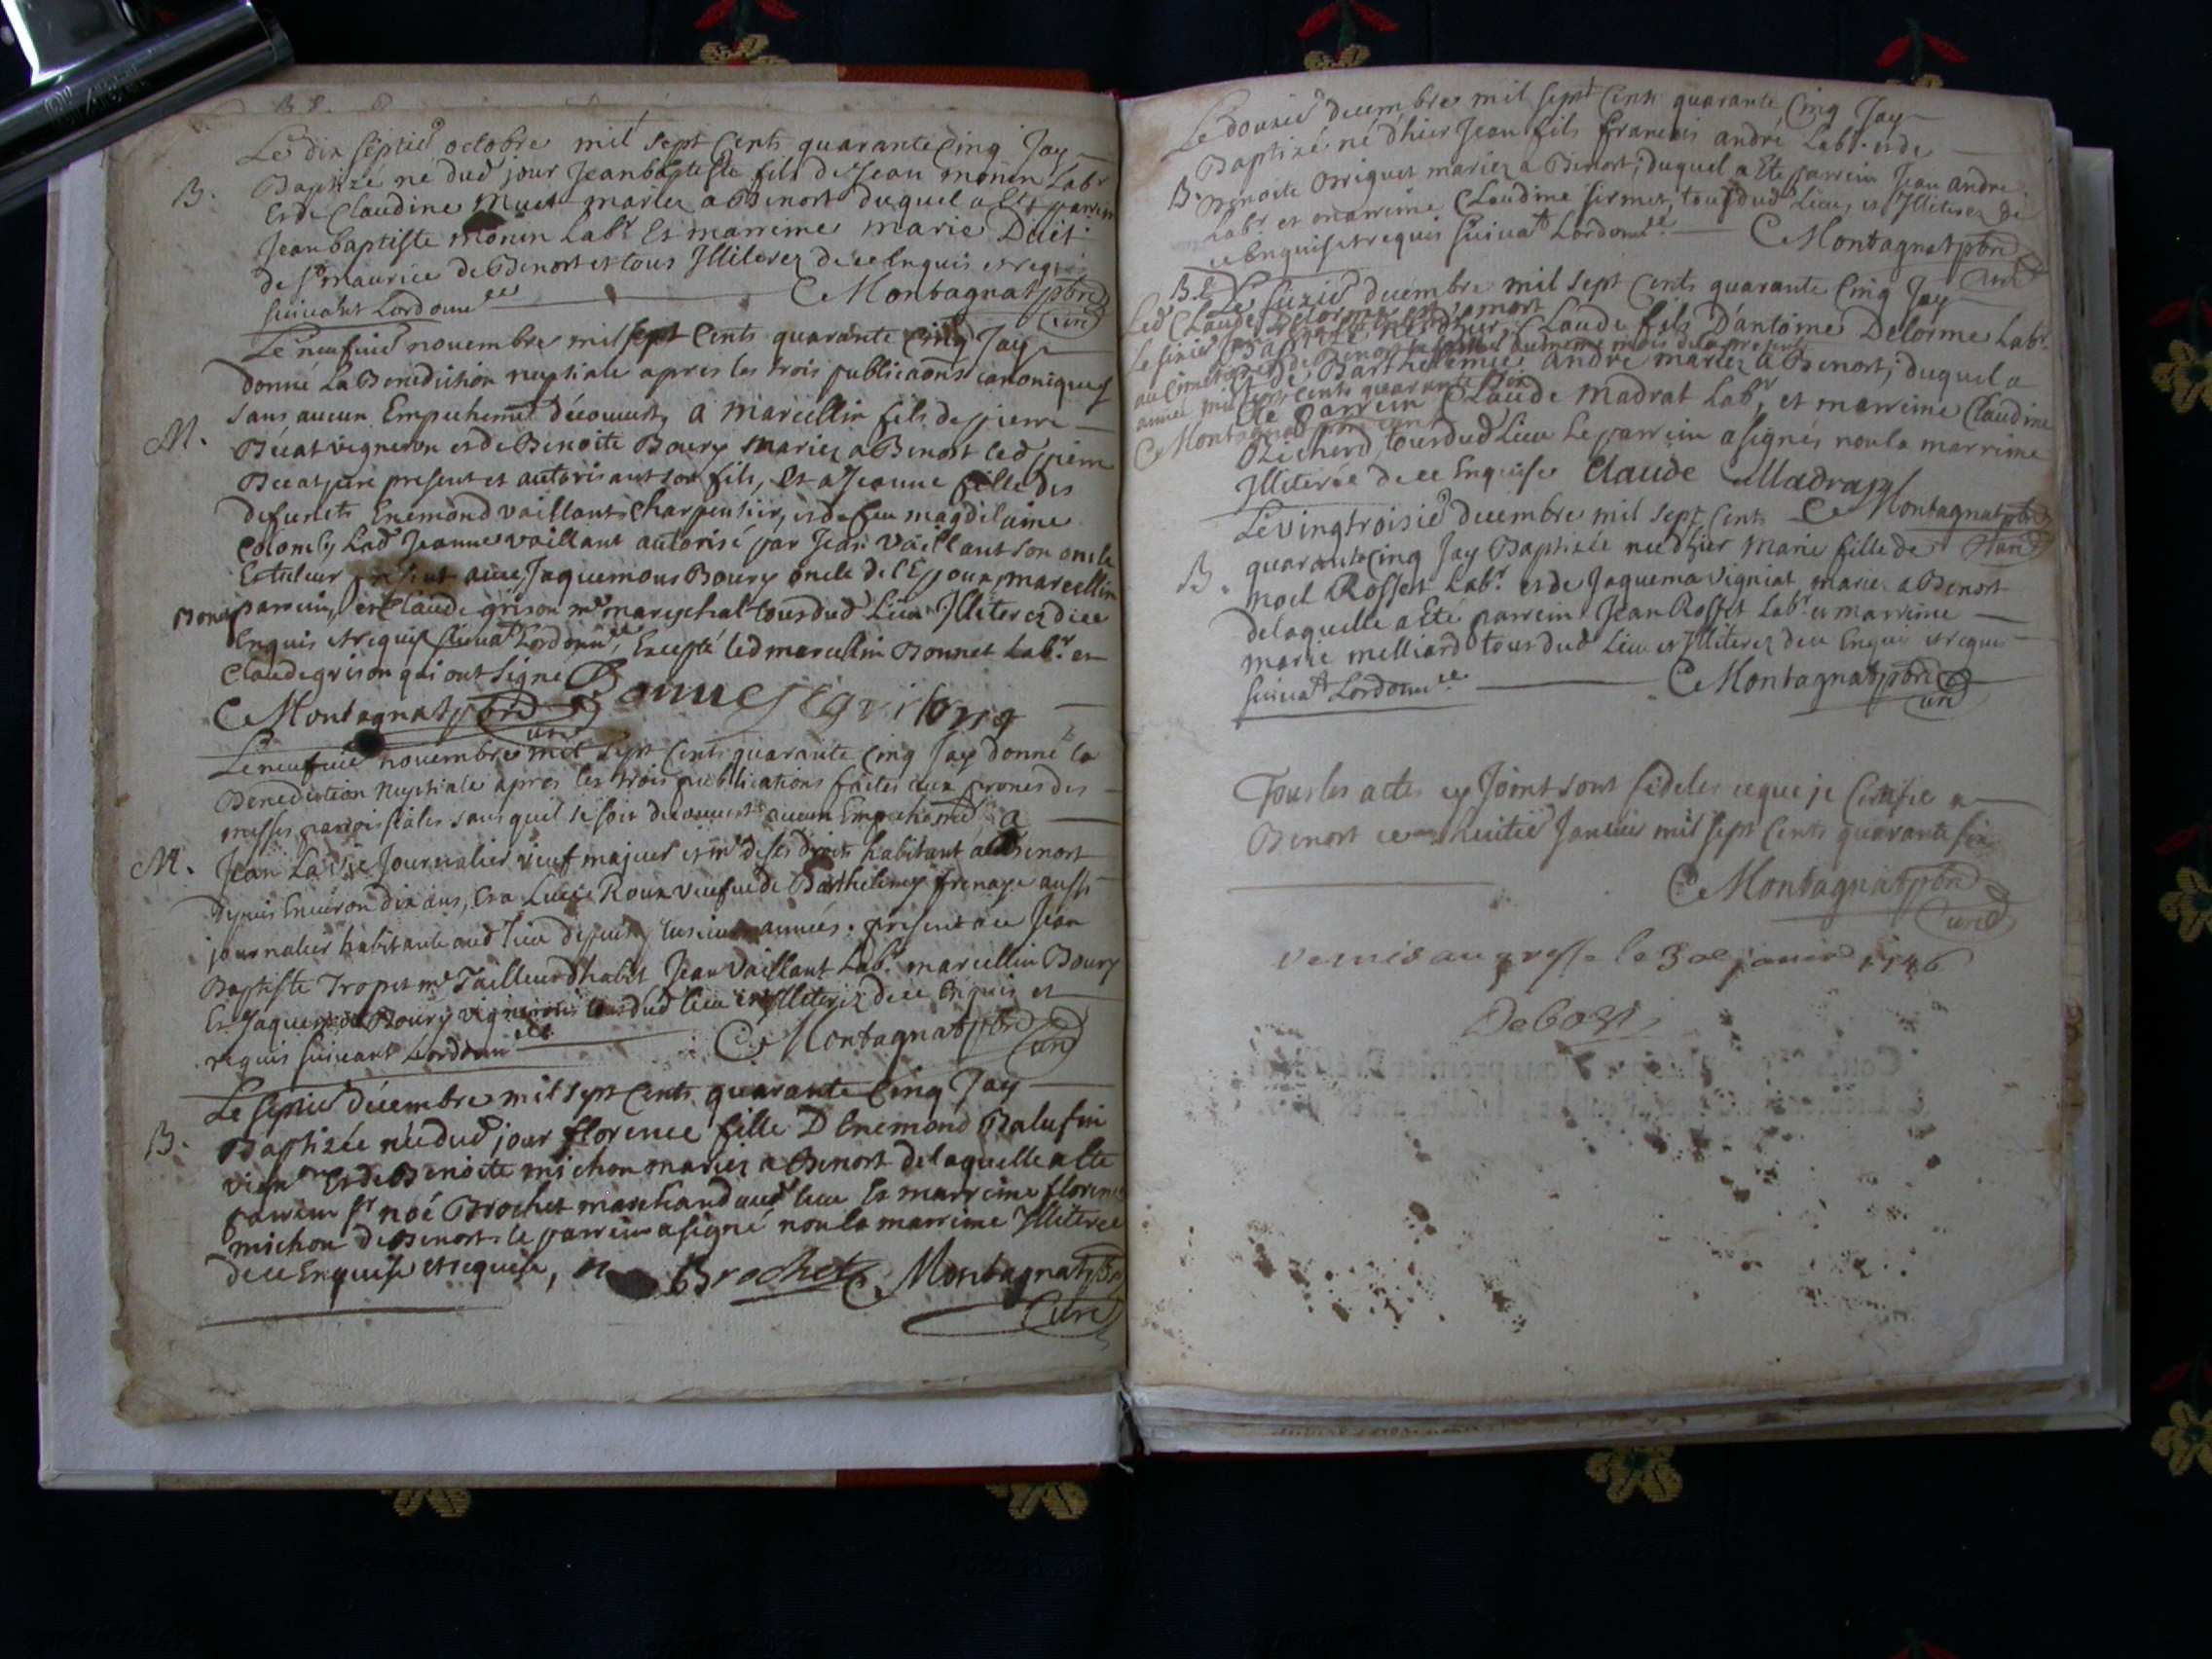 Le dix septie octobre mil sept Cents quarante Cinq Jay
B. Baptizé né dud jour Jean baptiste fils de Jean monin Labr
Et de Claudine muet mariez a Benort duquel a Eté parrein
Jean baptiste monin Labr Et marreine marie Duet
de St maurice de Benort et tous Illiterez de ce Enquis et requis
suivant Lordonnce C Montagnat pbre
curé
Le neufvie novembre mil sept Cents quarante cinq Jay
donné La Benediction nuptiale apres les trois publicaons canoniques
sans aucun Empechemt découvert, a marcellin fils de pierre
M. Bécat vigneron et de Benoite Boury mariez a Benort led pierre
Becat pere present et autorisant son fils, Et a Jeanne fille des
defuncts Enemond vaillant charpentier, et de feu magdelaine
Colomb, Lad Jeanne vaillant autorisé par Jean vaillant son oncle
Et tuteur present avec Jaquemous Boury oncle de l'Epoux, marcellin
Bonet parrein, et Claude grison me mareschal tous dud Lieu Illiterez de ce
Enquis et requis suivat Lordonnce, Excepté led marcellin Bonnet Labr et
Claude grison qui ont signé Bonnet grison
C Montagnat pbre
curé
Le neufvie novembre mil sept Cents quarante Cinq Jay donné la
Benediction Nuptiale apres les trois publications faites aux prones des
messes paroissiales sans quil se soit decouvert aucun Empechemt, a
M. Jean La vie Journalier veuf majeur et me de ses droits habitant a Benort
depuis Environ dix ans, Et a Lucie Roux veufve de Barthelemy frenay aussi
journalier habitante aud lieu depuis plusieurs années. present a ce Jean
Baptiste Tropet me Tailleur d'habit Jean vaillant Labr marcellin Boury
Et Jaquemous Boury vignerons tous dud lieu et Illiterez de ce Enquis et
requis suivant Lordonnce C Montagnat pbre
curé
Le septie décembre mil sept Cents quarante Cinq Jay
B. Baptizée née dud jour florence fille D Enemond Balufin
vignron Et de Benoite michon mariez a Benort de laquelle a Eté
parrein Sr noé Brochet marchand aud lieu Et marreine florence
michon de Benort le parrein a signé non la marreine Illiterée
de ce Enquise et requise, Brochet C Montagnat pbre
curé
Le douzie decembre mil sept Cents quarante Cinq Jay
Baptizé né d'hier Jean fils francois andré Labr. et de
B. Benoite Briguet mariez a Benort; duquel a Eté parrein Jean andré
Labr. et marreine Claudine sirmet, tous dud Lieu, et Illiterez de
ce Enquis et requis suivat Lordonnce C Montagnat pbre
curé
B. Le sizie decembre mil sept Cents quarante Cinq Jay
Baptizé né d'hier, Claude fils D'antoine Delorme Labr.
et de Barthelemie andré mariez a Benort; duquel a
Eté parrein Claude madrat Labr, et marreine Claudine
Richerd, tous dud Lieu Le parrein a signés non la marreine
Illiterée de ce Enquise Claude Madrat
C Montagnat pbre
curé
Led Claude Delorme est mort
Le sizie
au Cimetiere de Benort
annee mil sept cents quarante six
C Montagnat pbre curé
Le vingtroisie decembre mil sept Cents
B. quarante cinq Jay Baptizée née d'hier Marie fille de
noel Rosset Labr. et de Jaquema vigniat mariez a Benort
de laquelle a Eté parrein Jean Rosset Labr et marreine
marie melliard tous dud Lieu et Illiterez de ce Enquis et requis
suivat Lordonnce C Montagnat pbre
curé
Tous les actes cy Joint sont fideles ce que je Certifie a
Benort ce huitie Janvier mil sept Cents quarante six
C Montagnat pbre
curé
remis au greffe le 30e janvier 1746
Debost